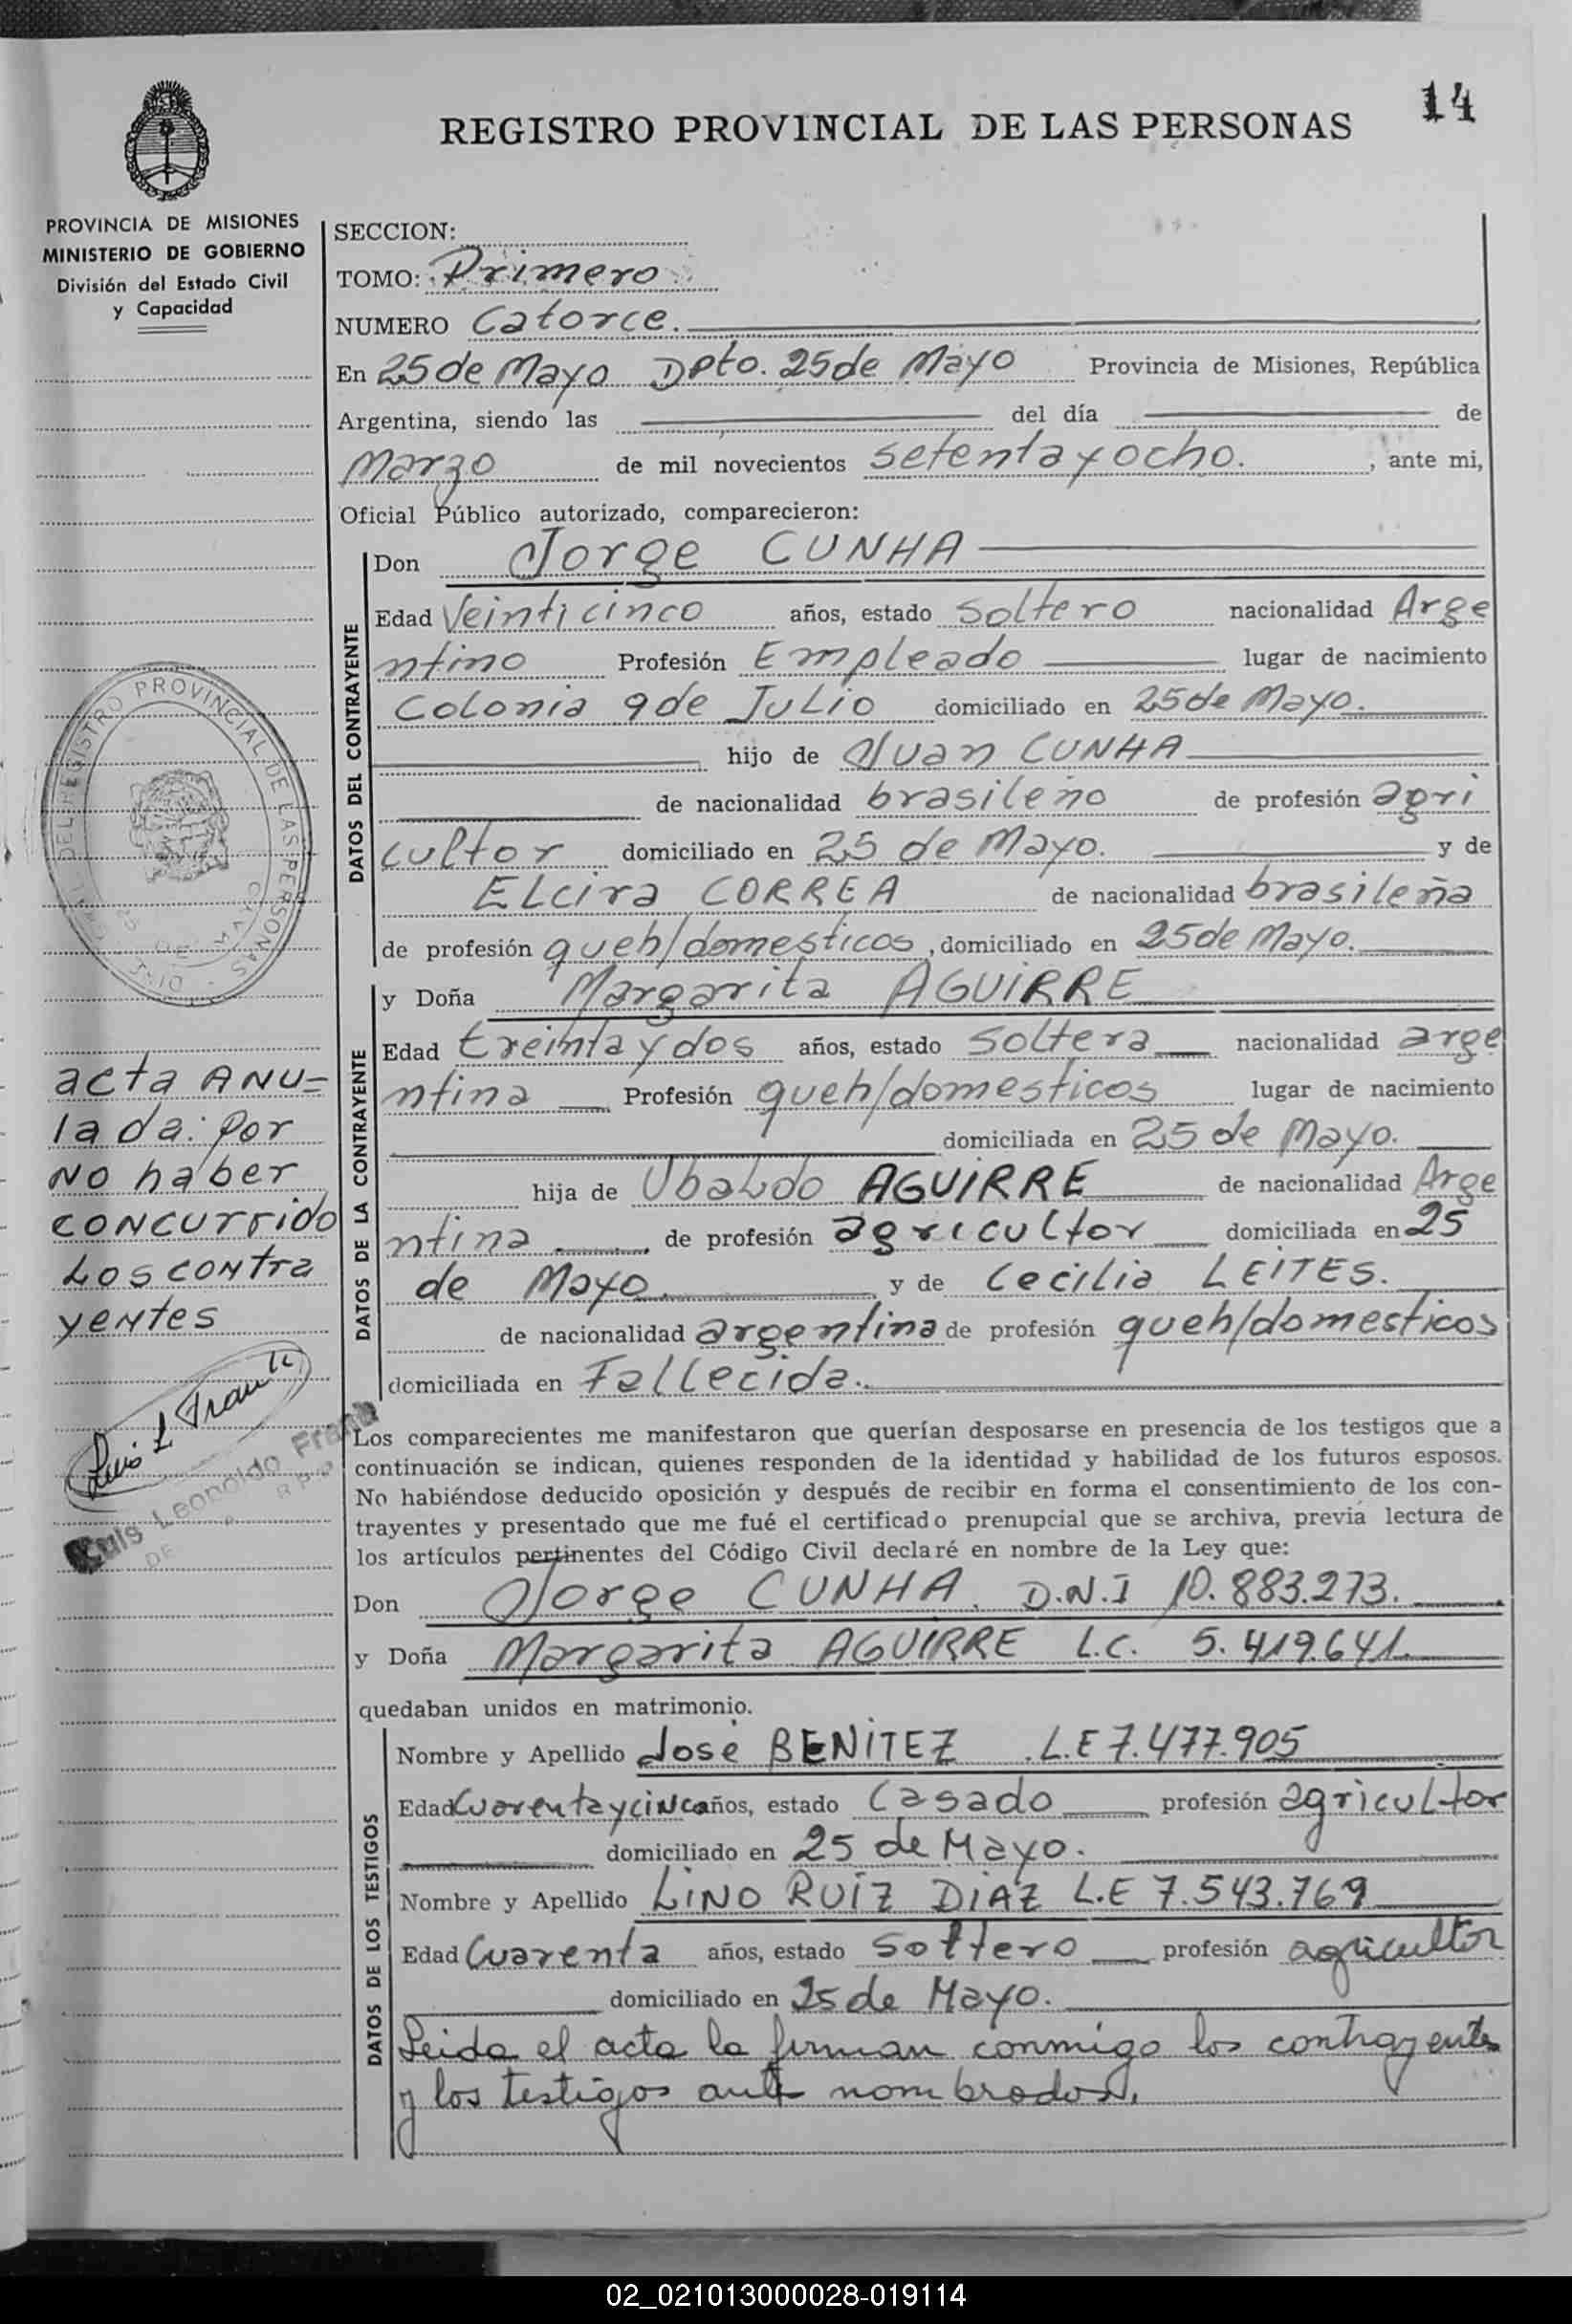 14
REGISTRO PROVINCIAL DE LAS PERSONAS
PROVINCIA DE MISIONES
MINISTERIO DE GOBIERNO
División del Estado Civil
y Capacidad
SECCION:
TOMO: Primero
NUMERO Catorce.
En 25 de Mayo Dpto. 25 de Mayo Provincia de Misiones, República
Argentina, siendo las del día de
Marzo de mil novecientos setenta y ocho. , ante mi,
Oficial Público autorizado, comparecieron:
DATOS DEL CONTRAYENTE
Don Jorge CUNHA
Edad Veinticinco años, estado soltero nacionalidad Arge
ntino Profesión Empleado lugar de nacimiento
Colonia 9 de Julio domiciliado en 25 de Mayo.
hijo de Juan CUNHA
de nacionalidad brasileño de profesión agri
cultor domiciliado en 25 de Mayo. y de
Elcira CORREA de nacionalidad brasileña
de profesión queh/domesticos, domiciliado en 25 de Mayo.
DATOS DE LA CONTRAYENTE
y Doña Margarita AGUIRRE
Edad treinta y dos años, estado soltera nacionalidad arge
ntina Profesión queh/domesticos lugar de nacimiento
domiciliada en 25 de Mayo.
hija de Ubaldo AGUIRRE de nacionalidad Arge
ntina, de profesión agricultor domiciliada en 25
de Mayo. y de Cecilia LEITES.
de nacionalidad argentina de profesión queh/domesticos
domiciliada en Fallecida.
REGISTRO PROVINCIAL DE LAS PERSONAS
25 DE MAYO
acta ANU=
lada: por
NO haber
CONCURRIDO
LOS CONTRA
YENTES
Luis L Frank
Luis Leopoldo Frank
Los comparecientes me manifestaron que querían desposarse en presencia de los testigos que a
continuación se indican, quienes responden de la identidad y habilidad de los futuros esposos.
No habiéndose deducido oposición y después de recibir en forma el consentimiento de los con-
trayentes y presentado que me fué el certificado prenupcial que se archiva, previa lectura de
los artículos pertinentes del Código Civil declaré en nombre de la Ley que:
Don Jorge CUNHA. D.N.I 10.883.273.
y Doña Margarita AGUIRRE L.C. 5.419.641.
quedaban unidos en matrimonio.
DATOS DE LOS TESTIGOS
Nombre y Apellido José BENITEZ L.E 7.477.905
Edad Cuarenta y cinco años, estado Casado profesión agricultor
domiciliado en 25 de Mayo.
Nombre y Apellido LINO RUIZ DIAZ L.E 7.543.769
Edad Cuarenta años, estado soltero profesión agricultor
domiciliado en 25 de Mayo.
Leida el acta la firman conmigo los contrayentes
y los testigos ante nombrados.
02_021013000028-019114